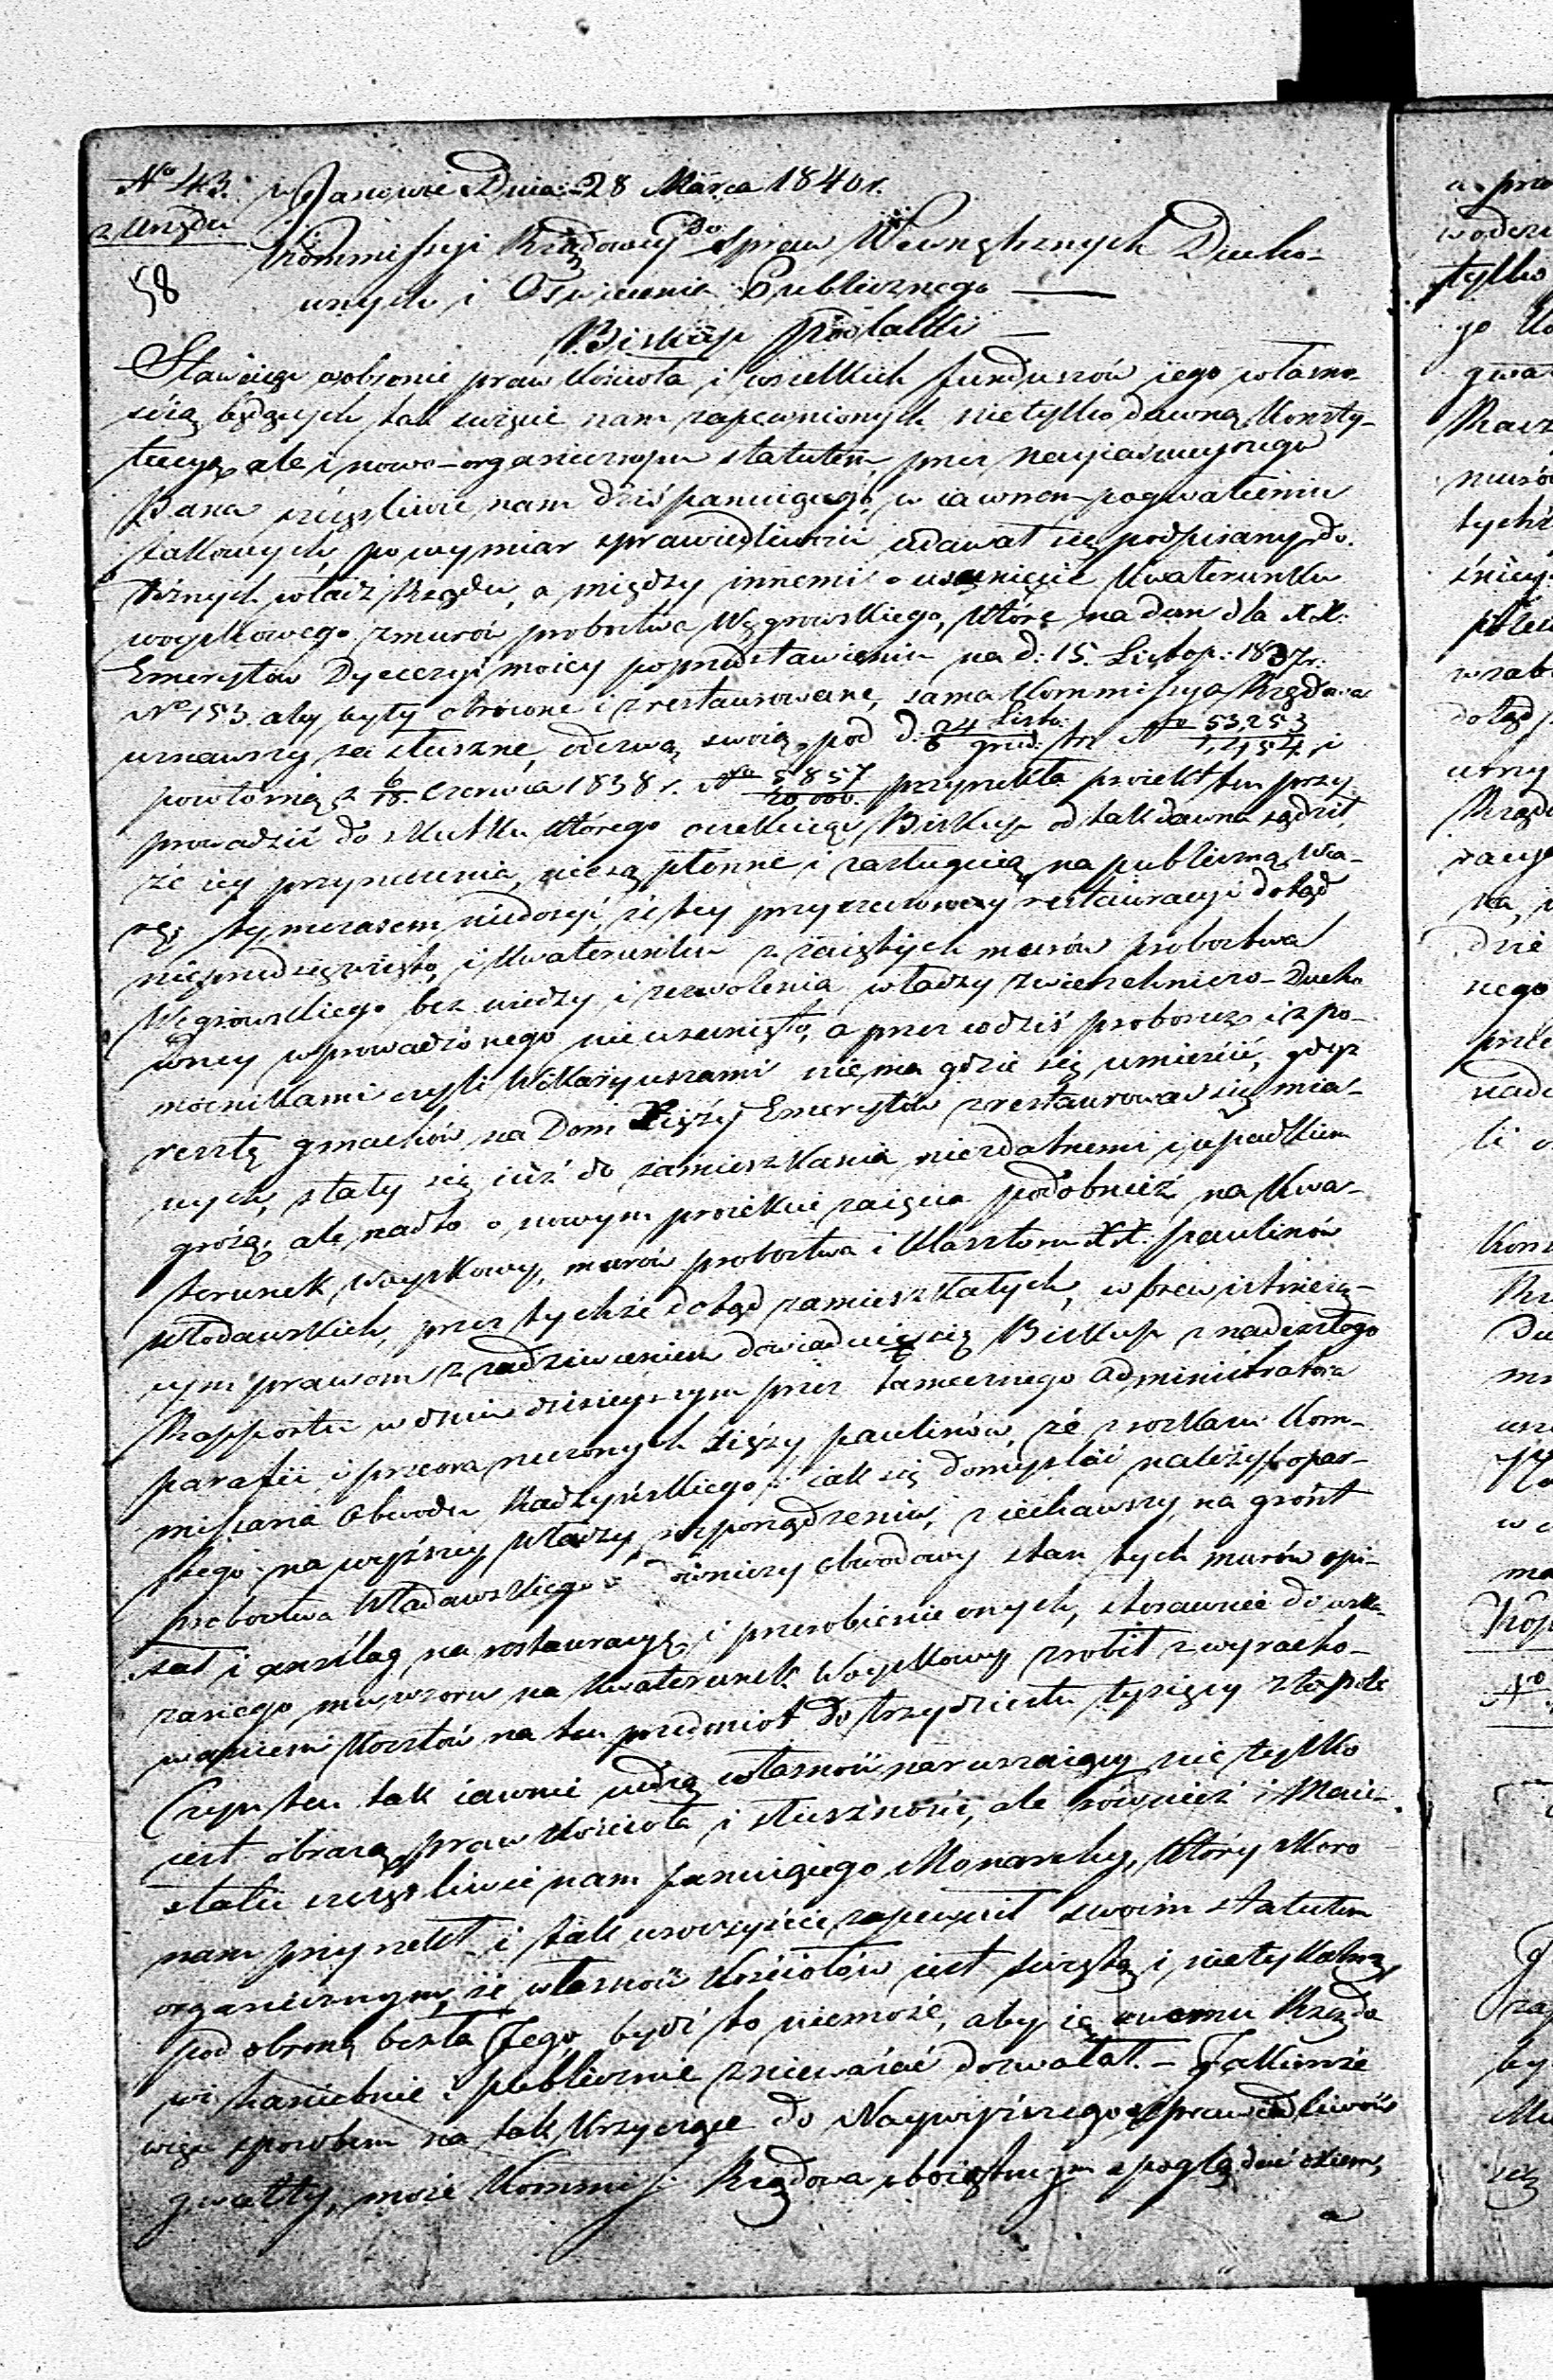 No 43. w Janowie Dnia 28 Marca 1840 r.
z Urzędu
Do
Kommissyi Rządowey Spraw Wewnętrznych Ducho-
58
wnych i Oświecenia Publicznego
Biskup Podlaski
Stawaiąc w obronie praw Kościoła, i wszelkich funduszów iego własno-
ścią będących tak święcie nam zapewnionych nietylko dawną Konsty-
tucyą, ale i nowo-organicznym statutem, przez Nayiaśnieyszego
Pana szczęśliwie nam dziś panuiącego, w iawnem pogwałceniu
takowych, po wymiar sprawiedliwości udawał się podpisany do
różnych władz Rządu, a między innemi o usunięcie Kwaterunku
woyskowego z murów probostwa Węgrowskiego, które na dom dla XX.
Emerytów Dyecezyi moiey po przedstawieniu na d: 15. Listop: 1837 r:
No 153. aby były obrócone i zrestaurowane, sama Kommissya Rządowa
uznawszy za słuszne, odezwą swoią pod d. 24 Listo: / 6 grud. tr No 53,253 / 12154, i
powtórną z 6/18 Czerwca 1838 r. No 5,857 / 20,000. przyrzekła proiekt ten przy-
prowadzić do skutku którego oczekuiąc Biskup od tak dawna sądził,
że iey przyrzeczenia, nie są płonne i zasługuią na publiczną wia-
rę; tymczasem niedosyć, że tey przyrzeczoney restauracyi dotąd
nieprzedsięwzięto, i Kwaterunku z zaiętych murów probostwa
Węgrowskiego bez wiedzy i zezwolenia władzy zwierzchniczo-Ducho-
wney wprowadzonego nie usunięto, a przez co dziś proboszcz z po-
mocnikami czyli Wikaryuszami nie ma gdzie się umieścić, gdyż
resztę gmachów na Dom Xięży Emerytów zrestaurować się mia-
nych, stały się iuż do zamieszkania niezdatnemi i upadkiem
grożą; ale nadto o nowym proiekcie zaięcia podobnież na Kwa-
terunek Woyskowy, murów probostwa i Klasztoru XX. Paulinów
Włodawskich, przez tychże dotąd zamieszkałych, wbrew istnieią-
cym prawom z zadziwieniem dowiaduie się Biskup z nadeszłego
Rapportu w dniu dzisieyszym przez tamecznego Administratora
parafii, i przeora rzeczonych Xięży Paulinów, że z rozkazu Kom-
missarza Obwodu Radzyńskiego, iak się domyślać należy opar-
tego na wyższey władzy rozporządzeniu, ziechawszy na grónt
probostwa Włodawskiego budowniczy obwodowy stan tych murów opi-
sał i anszlag na restauracyę i przerobienie onych, stosownie do wska-
zanego mu wzoru na Kwaterunek Woyskowy zrobił z wyracho-
waniem Kosztów na ten przedmiot do trzydziestu tysięcy złotpols
Czyn ten tak iawnie cudzą własność naruszaiący nie tylko
iest obrazą praw Kościoła i słuszności, ale również i Maie-
statu szczęśliwie nam panuiącego Monarchy, który skoro
nam przyrzekł i tak uroczyście zapewnił swoim statutem
organicznym, że własność Kościołów iest świętą i nietykalną
pod obroną berła Jego, bydź to niemoże, aby ią swemu Rządo
wi haniebnie i publicznie znieważać dozwalał. - Jakimże
więc sposobem na tak krzyczące do Naywyższego sprawiedliwości
gwałty, może Kommiss: Rządowa oboiętnym spoglądać okiem,
a